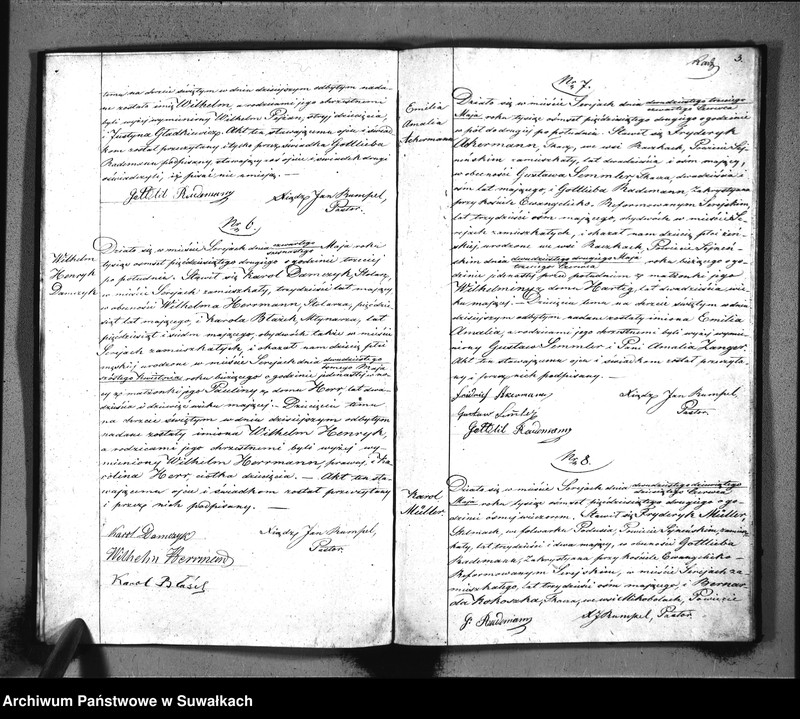 temu na chrzcie świętym w dniu dzisiejszym odbytym nada-
ne zostało imię Wilhelm, a rodzicami jego chrzestnemi
byli wyżej wymieniony Wilhelm stryj dziecięcia,
i Justyna Gładkiewicz. Akt ten stawającemu ojcu i świad-
kom został przeczytany i tylko przez świadka Gottlieba
Rademann podpisany, stawający zaś ojciec i świadek drugi
oświadczyli, iż pisać nie umieją. —
Gottlil Radmann
Xiądz Jan Rumpel,
Pastor.
No 6.
Wilhelm
Henryk
Damczyk
Działo się w mieście Serejach dnia czwartego
szesnastego Maja roku
tysiąc ośmset pięćdziesiątego drugiego o godzinie trzeciej
po południu. Stawił się Karol Damczyk, Stelarz,
w mieście Serejach zamieszkały, lat trzydzieści mający
w obecności Wilhelma Herrmann, Stelarza, pięćdzie-
siąt lat mającego, i Karola Błażek, Młynarza, lat
pięćdziesiąt i siedm mającego, obydwóch także w mieście
Serejach zamieszkałych, i okazał nam dziecię płci
męzkiej urodzone w mieście Serejach dnia dwudziestego
szóstego Kwietnia roku bieżącego o godzinie jedenastej w no-
cy z małżonki jego Pauliny z domu Herr, lat dwa-
dzieścia i dziewięć wieku mającej. — Dziecięciu temu
na chrzcie świętym w dniu dzisiejszym odbytym
nadane zostały imiona Wilhelm Henryk,
a rodzicami jego chrzestnemi byli wyżej wy-
mieniony Wilhelm Herrmann, i Ka-
rolina Herr, ciotka dziecięcia. — Akt ten sta-
wającemu ojcu i świadkom został przeczytany
i przez nich podpisany. —
Karol Damczyk
Xiądz Jan Rumpel,
Pastor.
Wilhelm Herrmand
Karol Błasik
3.
No 7.
Emilia
Amalia
Ackermann
Działo się w mieście Serejach dnia dwudziestego trzeciego
czwartego Czerwca
Maja roku tysiąc ośmset pięćdziesiątego drugiego o godzinie
w pół do drugiej po południu. Stawił się Fryderyk
Akermann, Tkacz, we wsi Raczkach, Powiecie Sej-
neńskim zamieszkały, lat dwadzieścia i ośm mający,
w obecności Gustawa Semmler, Tkacza, dwadzieścia i
ośm lat mającego, i Gottlieba Rademann, Zakrystyana
przy kościele Ewangelicko-Reformowanym Serejskim,
lat trzydzieści ośm mającego, obydwóch w mieście Se-
rejach zamieszkałych, i okazał nam dziecię płci żeń-
skiej urodzone we wsi Raczkach, Powiecie Sejneń-
skim dnia dwudziestego drugiego Maja
trzeciego Czerwca roku bieżącego o go-
dzinie jedenastej przed południem z małżonki jego
Wilhelminy z domu Hartig, lat dwadzieścia wie-
ku mającej. — Dziecięciu temu na chrzcie świętym w dniu
dzisiejszym odbytym nadane zostały imiona Emilia
Amalia, a rodzicami jego chrzestnemi byli wyżej wymie-
niony Gustaw Semmler i Pani Amalia Zanger.
Akt ten stawającemu ojcu i świadkom został przeczyta-
ny i przez nich podpisany. —
Xiądz Jan Rumpel,
Pastor.
Gottlil Radmann
No 8.
Karol
Müller.
Działo się w mieście Serejach dnia dwudziestego dziewiątego
dziesiątego Czerwca
Maja roku tysiąc ośmset pięćdziesiątego drugiego o go-
dzinie ósmej wieczorem. Stawił się Fryderyk Müller,
Stelmach, w folwarku Powiecie Sejneńskim zamiesz-
kały, lat trzydzieści i dwa mający, w obecności Gottlieba
Rademann, Zakrystyana przy kościele Ewangelicko-
Reformowanym Serejskim, w mieście Serejach za-
mieszkałego, lat trzydzieści ośm mającego, i Bernar-
da Kokoszka, Tkacza, we wsi Powiecie
G. Radmann
X J Rumpel, Pastor.
Archiwum Państwowe w Suwałkach